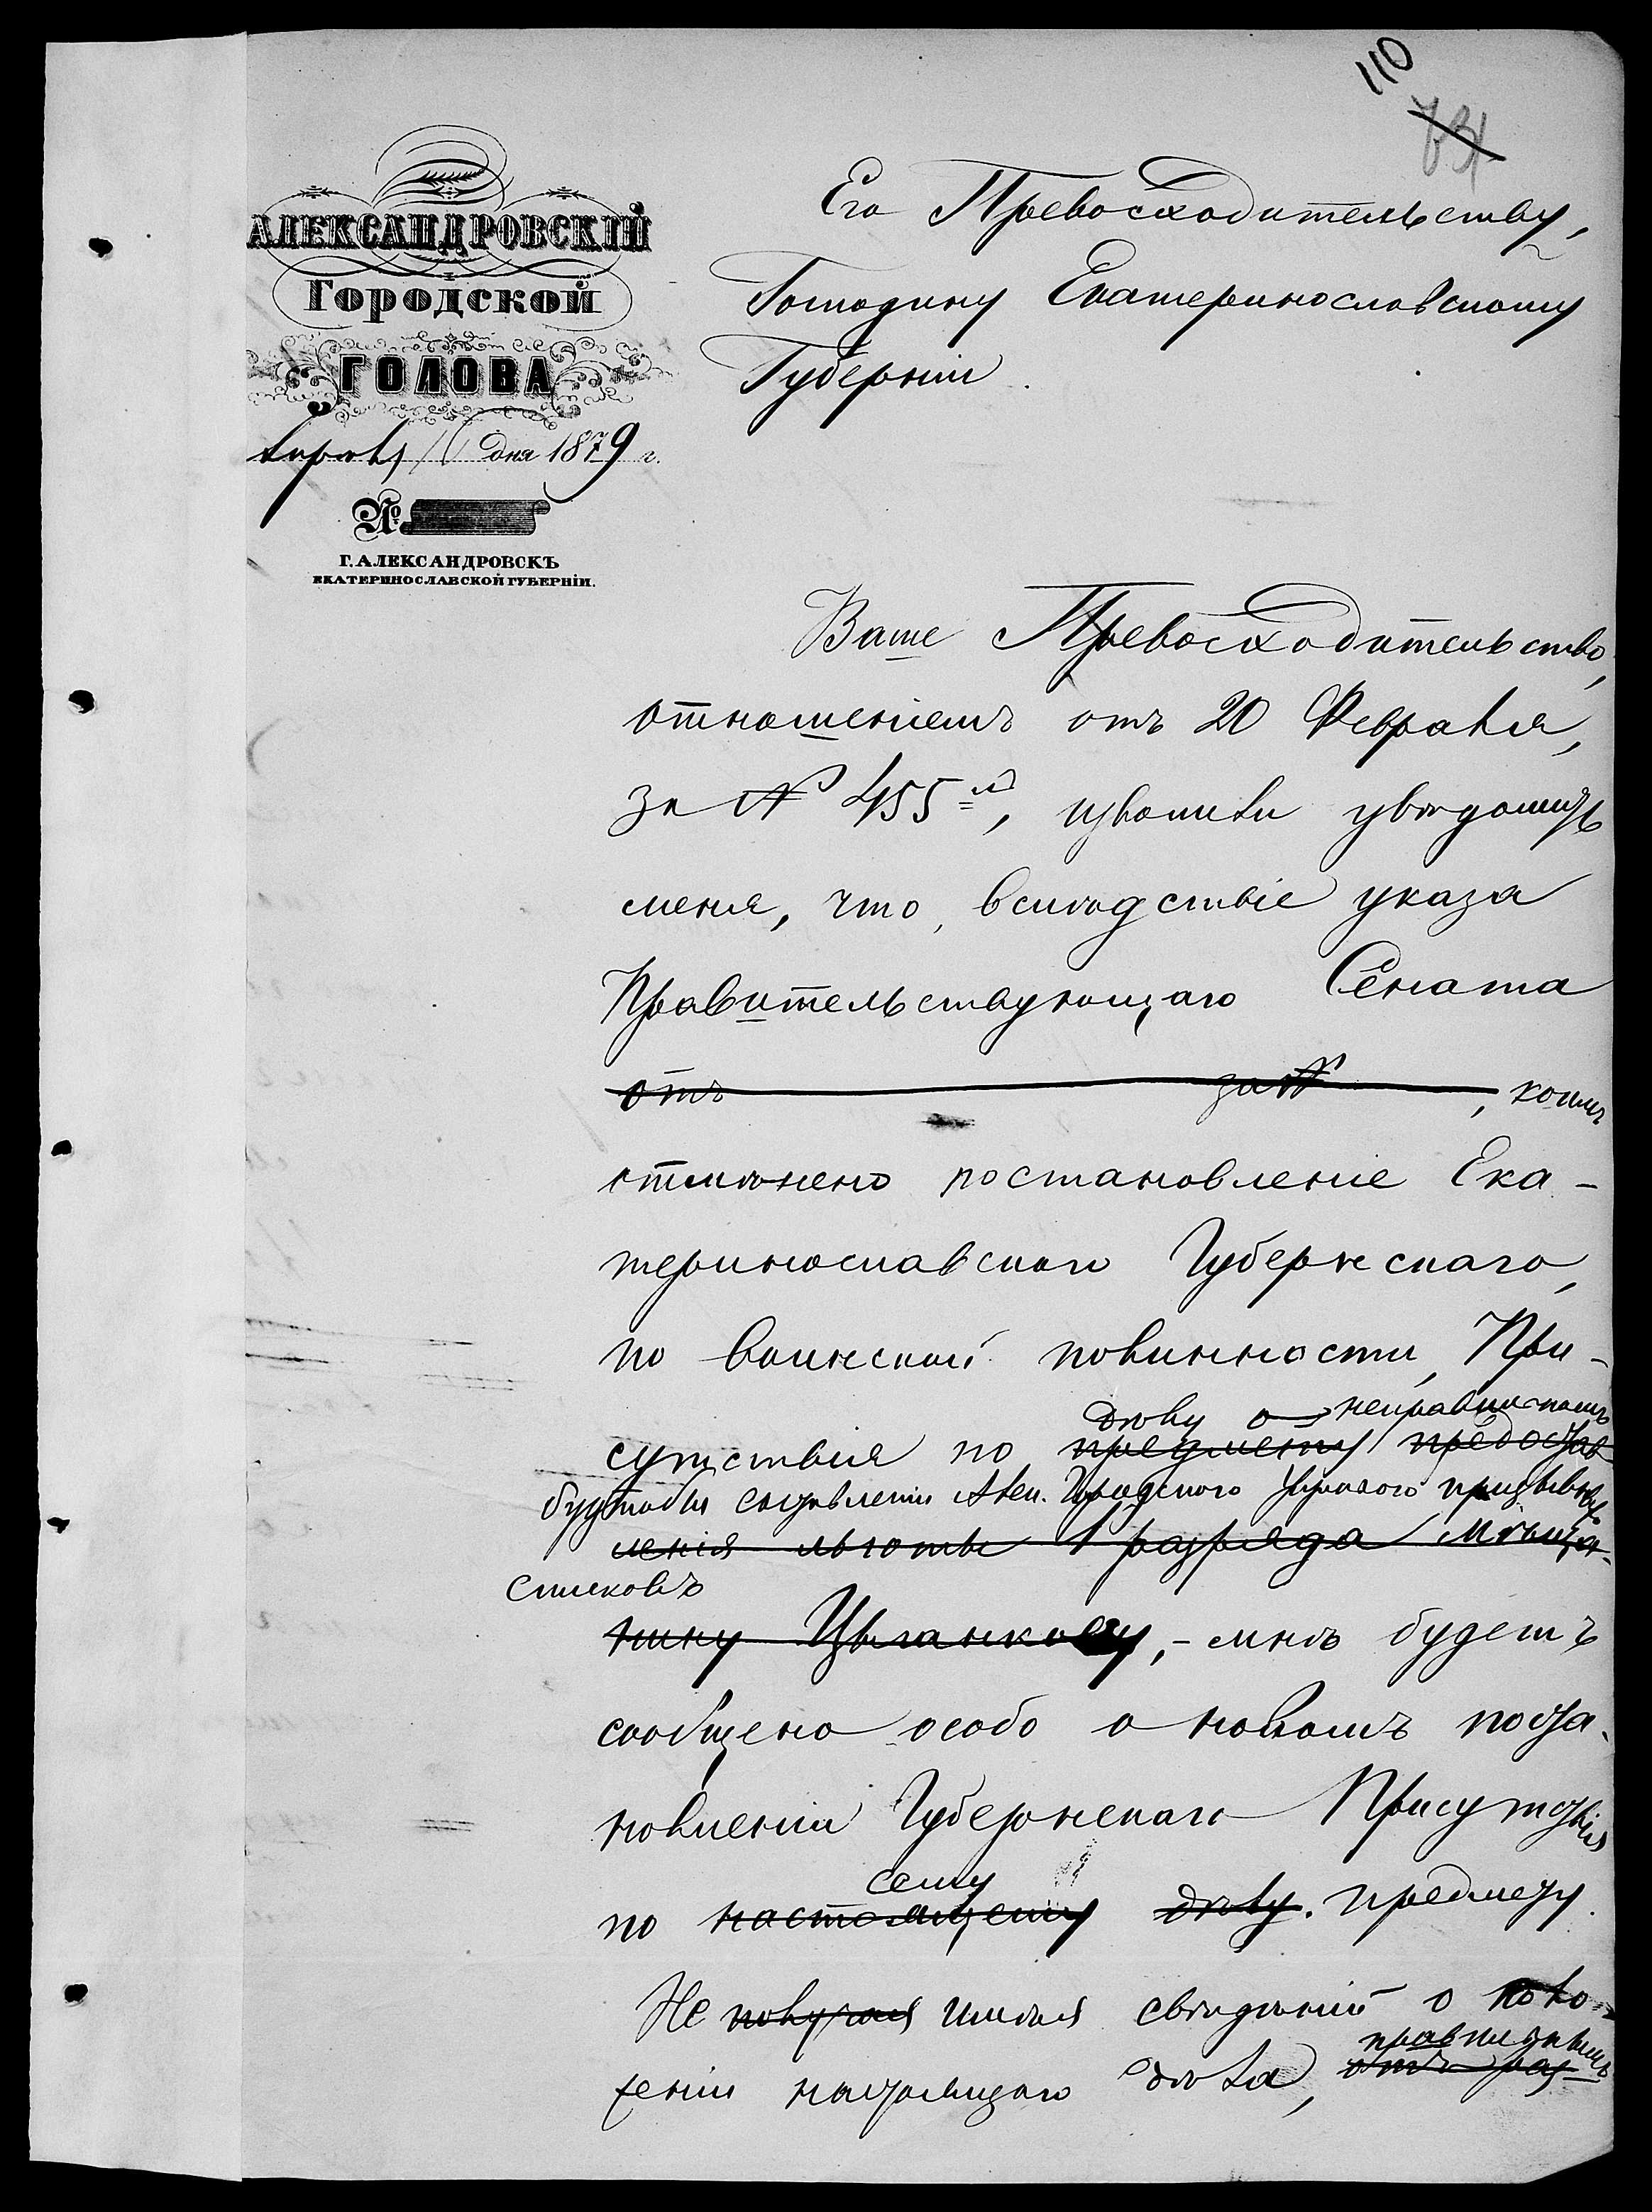 110
АЛЕКСАНДРОВСКІЙ
Городской
ГОЛОВА
дня 1879 г.
№
Г. АЛЕКСАНДРОВСКЪ
ЕКАТЕРИНОСЛАВСКОЙ ГУБЕРНІИ.
Его Превосходительству,
Господину Екатеринославскому
Губерніи.
Ваше Превосходительство,
отношеніемъ отъ 20 Февраля,
за № 455, изволили увѣдомить
меня, что, вслѣдствіе указа
Правительствующаго Сената
отъ за №, коимъ
отмѣнено постановленіе Ека-
теринославскаго Губернскаго,
по воинской повинности, При-
дѣлу о неправильномъ
сутствія по предмету предостав
будтобы составленіи Алек. Городского призывныхъ
ленія льготы 1 разряда мѣща-
списковъ
нину Цыганкову, - мнѣ будетъ
сообщено особо о новомъ поста-
новленіи Губернскаго Присутствія
сему
по настоящему дѣлу. предмету.
Не получая имѣя свѣдѣній о поло-
правильнымъ
женіи настоящаго дѣла, отъ раз